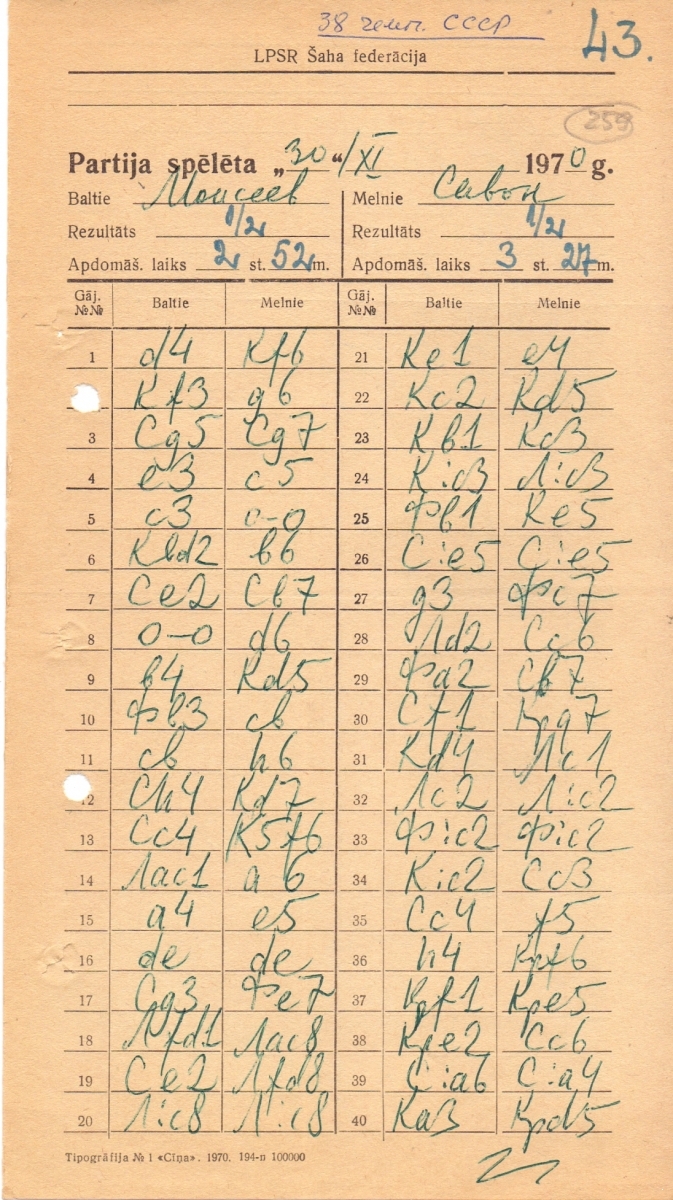 38 чемп. СССР
43.
LPSR Šaha federācija
259
Partija spēlēta „30“/XI 1970 g.
Baltie Моисеев Melnie Савон
Rezultāts 1/2 Rezultāts 1/2
Apdomāš. laiks 2 st. 52 m. Apdomāš. laiks 3 st. 27 m.
Gāj. №№ Baltie Melnie Gāj. №№ Baltie Melnie
1 d4 Кf6 21 Кe1 e4
Кf3 g6 22 Кc2 Кd5
3 Сg5 Сg7 23 Кв1 Кc3
4 e3 c5 24 К:c3 Л:c3
5 c3 0-0 25 Фв1 Кe5
6 Кbd2 в6 26 С:e5 С:e5
7 Сe2 Св7 27 g3 Фc7
8 0-0 d6 28 Лd2 Сc6
9 в4 Кd5 29 Фa2 Св7
10 Фв3 cв 30 Сf1 Крg7
11 cв h6 31 Кd4 Лc1
12 Сh4 Кd7 32 Лc2 Л:c2
13 Сc4 К5f6 33 Ф:c2 Ф:c2
14 Лac1 a6 34 К:c2 Сc3
15 a4 e5 35 Сc4 f5
16 de de 36 h4 Крf6
17 Сg3 Фe7 37 Крf1 Крe5
18 Лfd1 Лac8 38 Крe2 Сc6
19 Сe2 Лfd8 39 С:a6 С:a4
20 Л:c8 Л:c8 40 Кa3 Крd5
Tipogrāfija № 1 «Cīņa». 1970. 194-n 100000